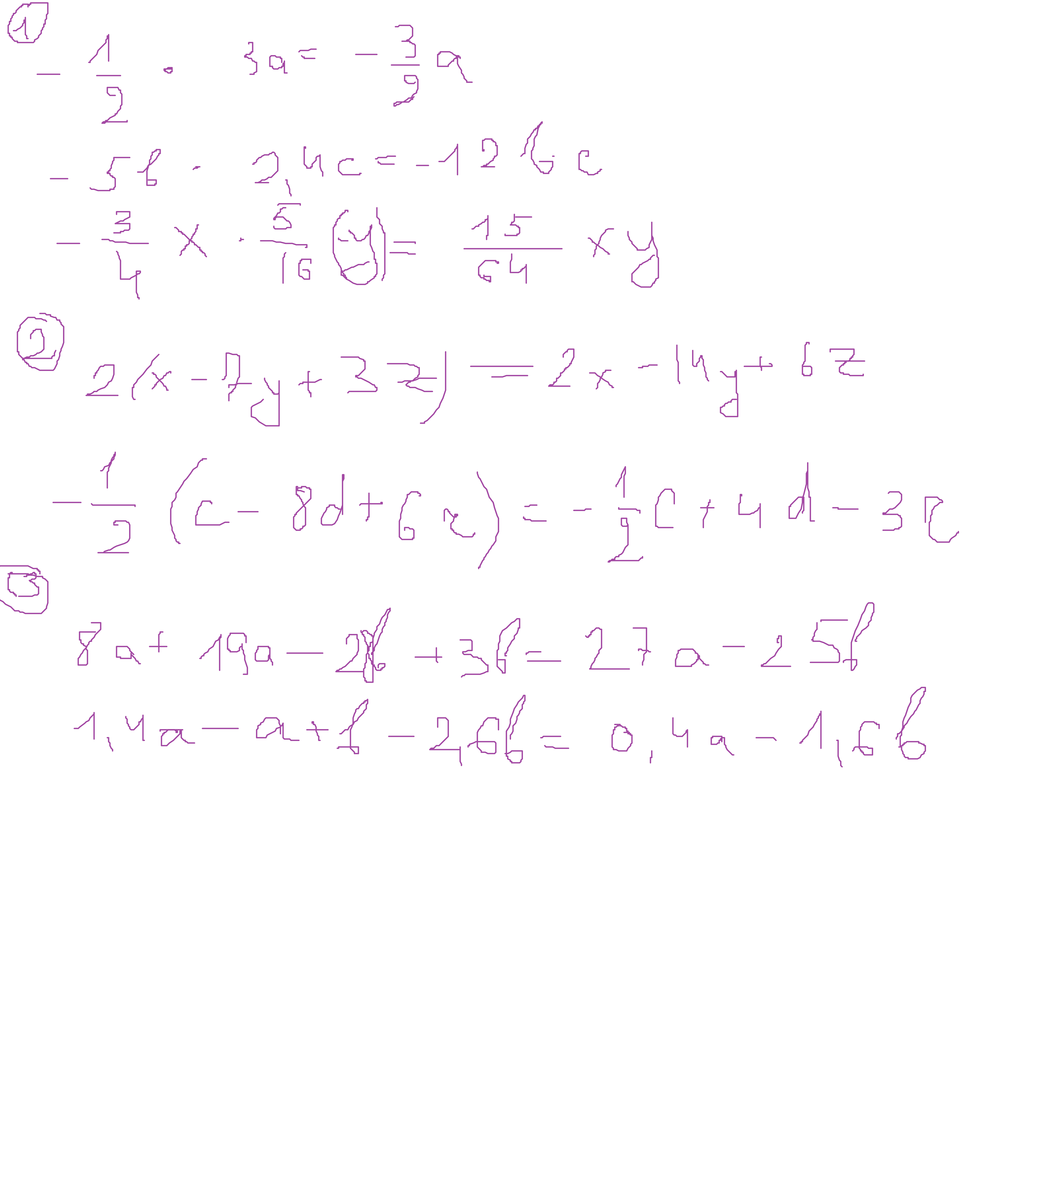 1
- 1/2 · 3a = - 3/2 a
- 5b · 2,4c = -12bc
- 3/4 x · 5/16 (-y) = 15/64 xy
2
2(x - 7y + 3z) = 2x - 14y + 6z
- 1/2 (c - 8d + 6r) = - 1/2 c + 4d - 3r
3
8a + 19a - 28b + 3b = 27a - 25b
1,4a - a + b - 2,6b = 0,4a - 1,6b